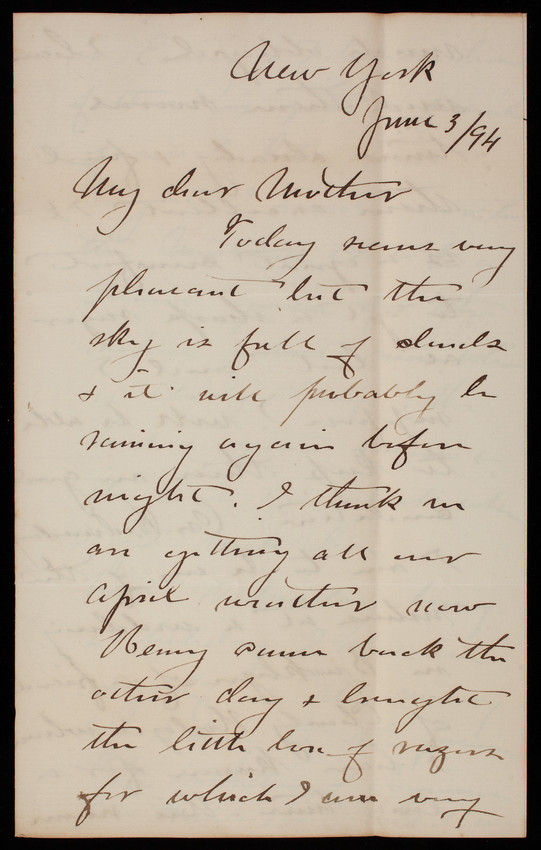 New York
June 3/94
My dear Mother
Today seems very
pleasant but the
sky is full of clouds
& it will probably be
raining again before
night. I think we
are getting all our
April weather now
Benny came back the
other day & brought
the little box of razors
for which I am very